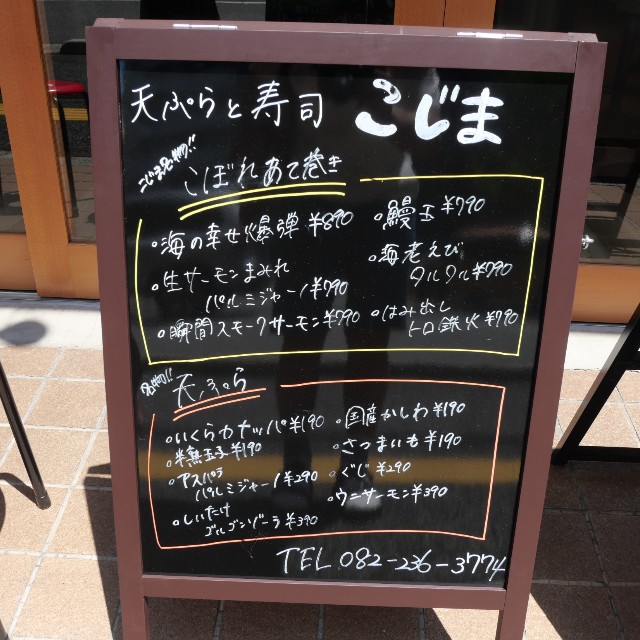 天ぷらと寿司 こじま
こじま名物!!
こぼれあて巻き
・海の幸せ爆弾 ¥890
・生サーモンまみれ
パルミジャーノ ¥790
・瞬間スモークサーモン ¥790
・鰻玉 ¥790
・海老えび
タルタル ¥790
・はみ出し
トロ鉄火 ¥790
名物!!
天ぷら
・いくらカナッパ ¥190
・半熟玉子 ¥190
・アスパラ
パルミジャーノ ¥290
・しいたけ
ゴルゴンゾーラ ¥390
・国産かしわ ¥190
・さつまいも ¥190
・ぐじ ¥290
・ウニサーモン ¥390
TEL 082-236-3774